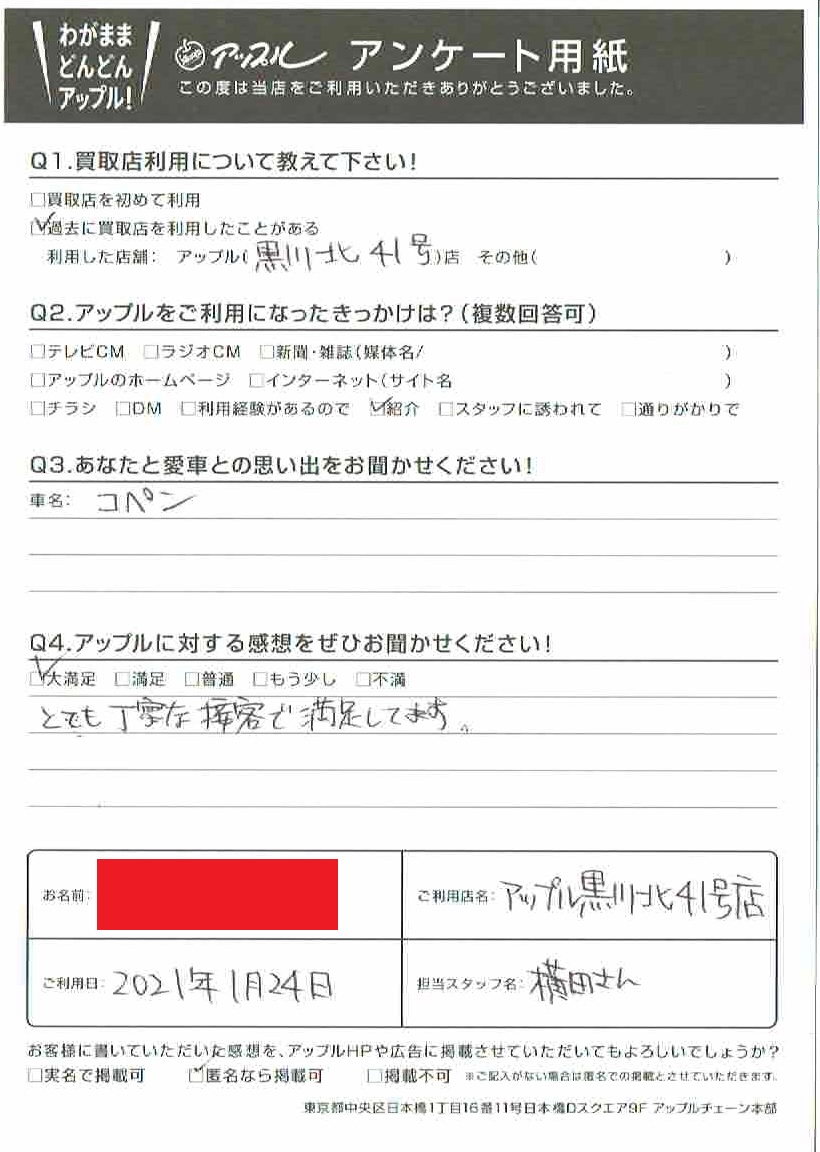 わがまま
どんどん
アップル!
アップル アンケート用紙
この度は当店をご利用いただきありがとうございました。
Q1.買取店利用について教えて下さい!
□買取店を初めて利用
☑過去に買取店を利用したことがある
利用した店舗: アップル(黒川北41号)店 その他( )
Q2.アップルをご利用になったきっかけは?(複数回答可)
□テレビCM □ラジオCM □新聞・雑誌(媒体名/ )
□アップルのホームページ □インターネット(サイト名 )
□チラシ □DM □利用経験があるので ☑紹介 □スタッフに誘われて □通りがかりで
Q3.あなたと愛車との思い出をお聞かせください!
車名: コペン
Q4.アップルに対する感想をぜひお聞かせください!
☑大満足 □満足 □普通 □もう少し □不満
とても丁寧な接客で満足してます。
お名前:
ご利用店名: アップル黒川北41号店
ご利用日: 2021年1月24日
担当スタッフ名: 横田さん
お客様に書いていただいた感想を、アップルHPや広告に掲載させていただいてもよろしいでしょうか?
□実名で掲載可 ☑匿名なら掲載可 □掲載不可 ※ご記入がない場合は匿名での掲載とさせていただきます。
東京都中央区日本橋1丁目16番11号日本橋Dスクエア9F アップルチェーン本部